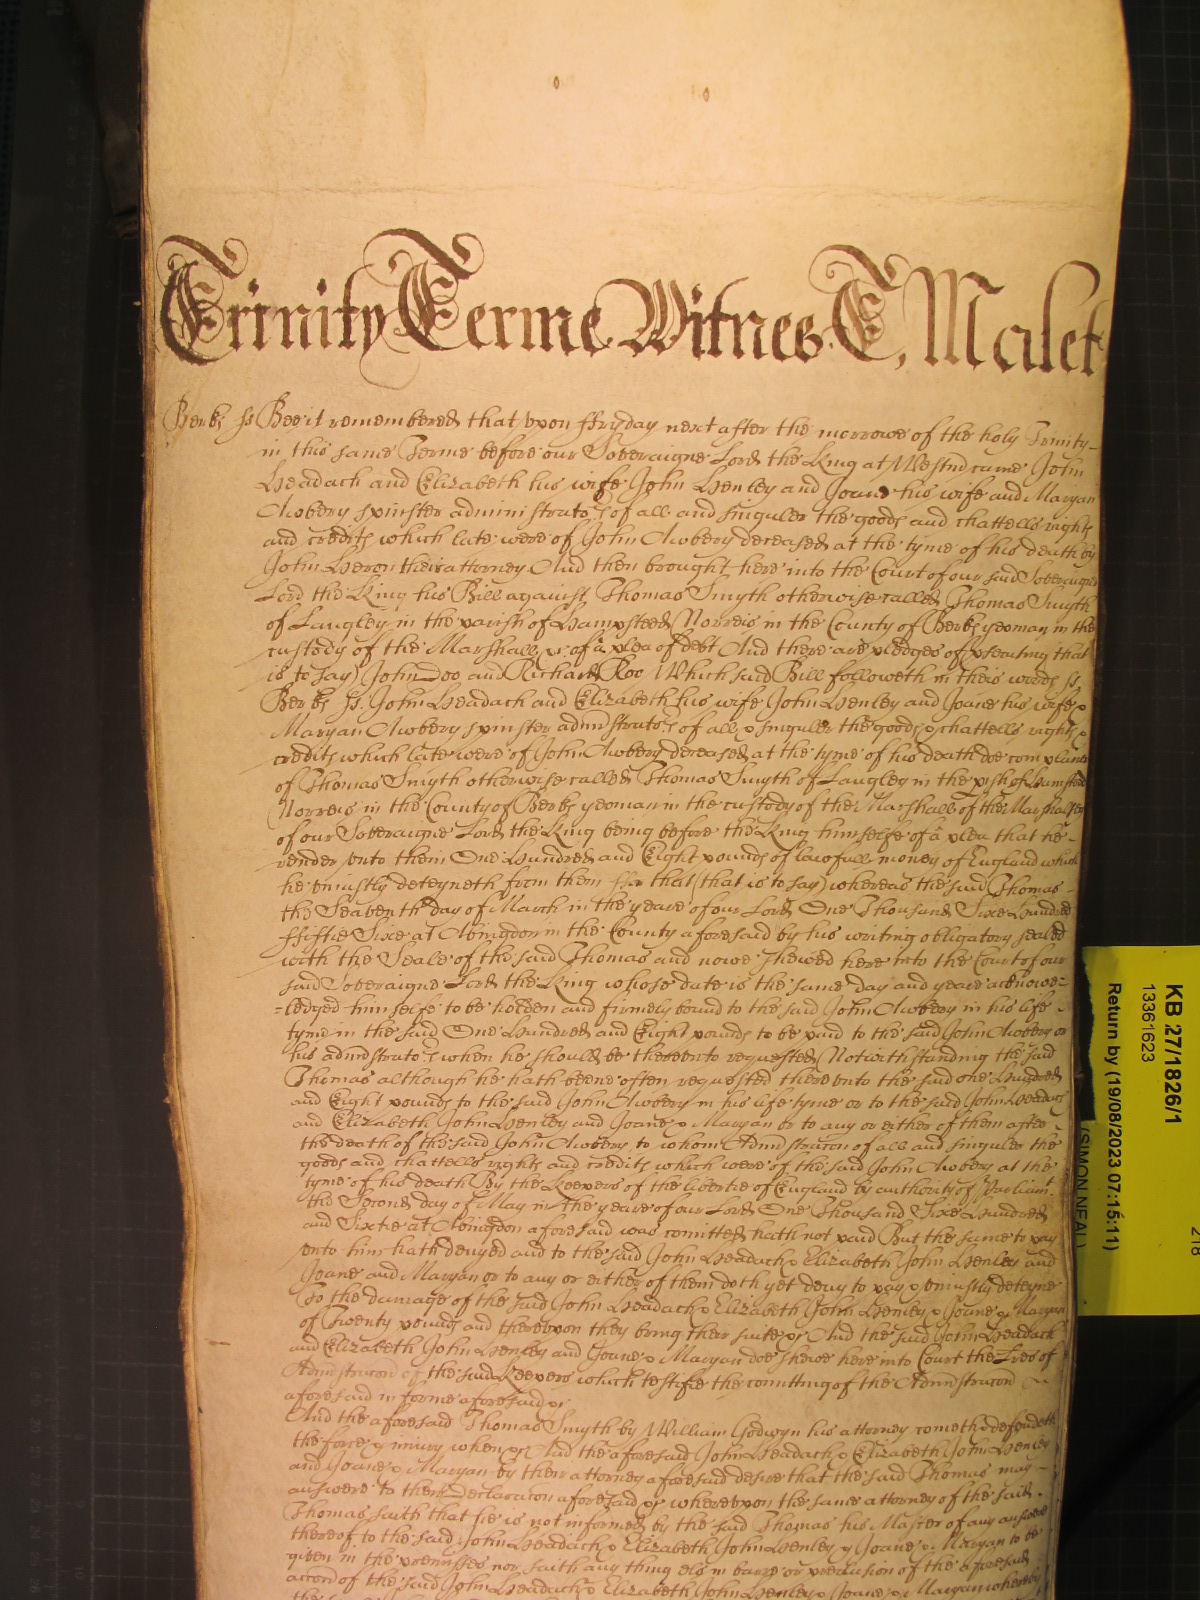 Trinity Terme Witnes T, Malet
Berks ss Bee it remembered that upon ffryday next after the morrowe of the holy Trinity
in this same Terme before our Soveraigne Lord the King at Westm came John
Headach and Elizabeth his wife John Henley and Joane his wife and Maryan
Awbery spinster administrators of all and singuler the goods and chattells rights
and credits which late were of John Awbery deceased at the tyme of his death by
John Heron their attorney And then brought here into the Court of our said Soveraigne
Lord the King his Bill against Thomas Smyth otherwise called Thomas Smyth
of Langley in the parish of Hampsteed Norreis in the County of Berks yeoman in the
custody of the Marshall &c of a plea of debt And there are pledges of psecuting that
is to say John Doo and Richard Roo Which said Bill followeth in theis words ss
Berks ss. John Headach and Elizabeth his wife John Henley and Joane his wife &
Maryan Awbery spinster adminstrators of all & singuler the goods & chattells rights &
credits which late were of John Awbery deceased at the tyme of his death doe complaine
of Thomas Smyth otherwise called Thomas Smyth of Langley in the pish of Hamsteed
Norreis in the County of Berks yeoman in the custody of the Marshall of the Marshalsey
of our Soveraigne Lord the King being before the King himselfe of a plea that he
render unto them One Hundred and Eight pounds of lawfull money of England which
he uniustly deteyneth from them ffor that (that is to say) whereas the said Thomas
the Seaventh day of March in the yeare of our Lord One Thousand Sixe Hundred
ffiftie Sixe at Abingdon in the County aforesaid by his writing obligatory sealed
with the Seale of the said Thomas and nowe shewed here into the Court of our
said Soveraigne Lord the King whose date is the same day and yeare acknowe-
-ledged himselfe to be holden and firmely bound to the said John Awbery in his life
tyme in the said One Hundred and Eight pounds to be paid to the said John Awbery or
his adminstrators when he should be thereunto requested Notwithstanding the said
Thomas although he hath beene often requested thereunto the said one Hundred
and Eight pounds to the said John Awbery in his life tyme or to the said John Headach
and Elizabeth John Henley and Joane & Maryan or to any or either of them after
the death of the said John Awbery to whom Adminstracon of all and singuler the
goods and chattells rights and credits which were of the said John Awbery at the
tyme of his death By the Keepers of the libertie of England by authority of Parliamt
the Second day of May in the yeare of our Lord One Thousand Sixe Hundred
and Sixtie at Abingdon aforesaid was comitted hath not paid But the same to pay
unto him hath denyed and to the said John Headach & Elizabeth John Henley and
Joane and Maryan or to any or either of them doth yet deny to pay & uniustly deteyne
To the damage of the said John Headach & Elizabeth John Henley & Joane & Maryan
of Twenty pounds and thereupon they bring their suite &c And the said John Headach
and Elizabeth John Henley and Joane & Maryan doe shewe here into Court the Lres of
Adminstracon of the said Keepers which testifie the comitting of the Adminstracon
aforesaid in forme aforesaid &c
And the aforesaid Thomas Smyth by William Godwyn his attorney cometh & defendeth
the force & iniury when &c And the aforesaid John Headach & Elizabeth John Henley
and Joane & Maryan by their attorney aforesaid desire that the said Thomas may
answere to their Declaracon aforesaid &c whereupon the same attorney of the said
Thomas saith that he is not informed by the said Thomas his Master of any answere
thereof to the said John Headach & Elizabeth John Henley & Joane & Maryan to be
given in the premisses nor saith any thing els in barre or preclusion of the aforesaid
accon of the said John Headach & Elizabeth John Henley & Joane & Maryan whereby
KB 27/1826/1
13361623
Return by (19/08/2023 07:15:11)
(SIMON NEAL)